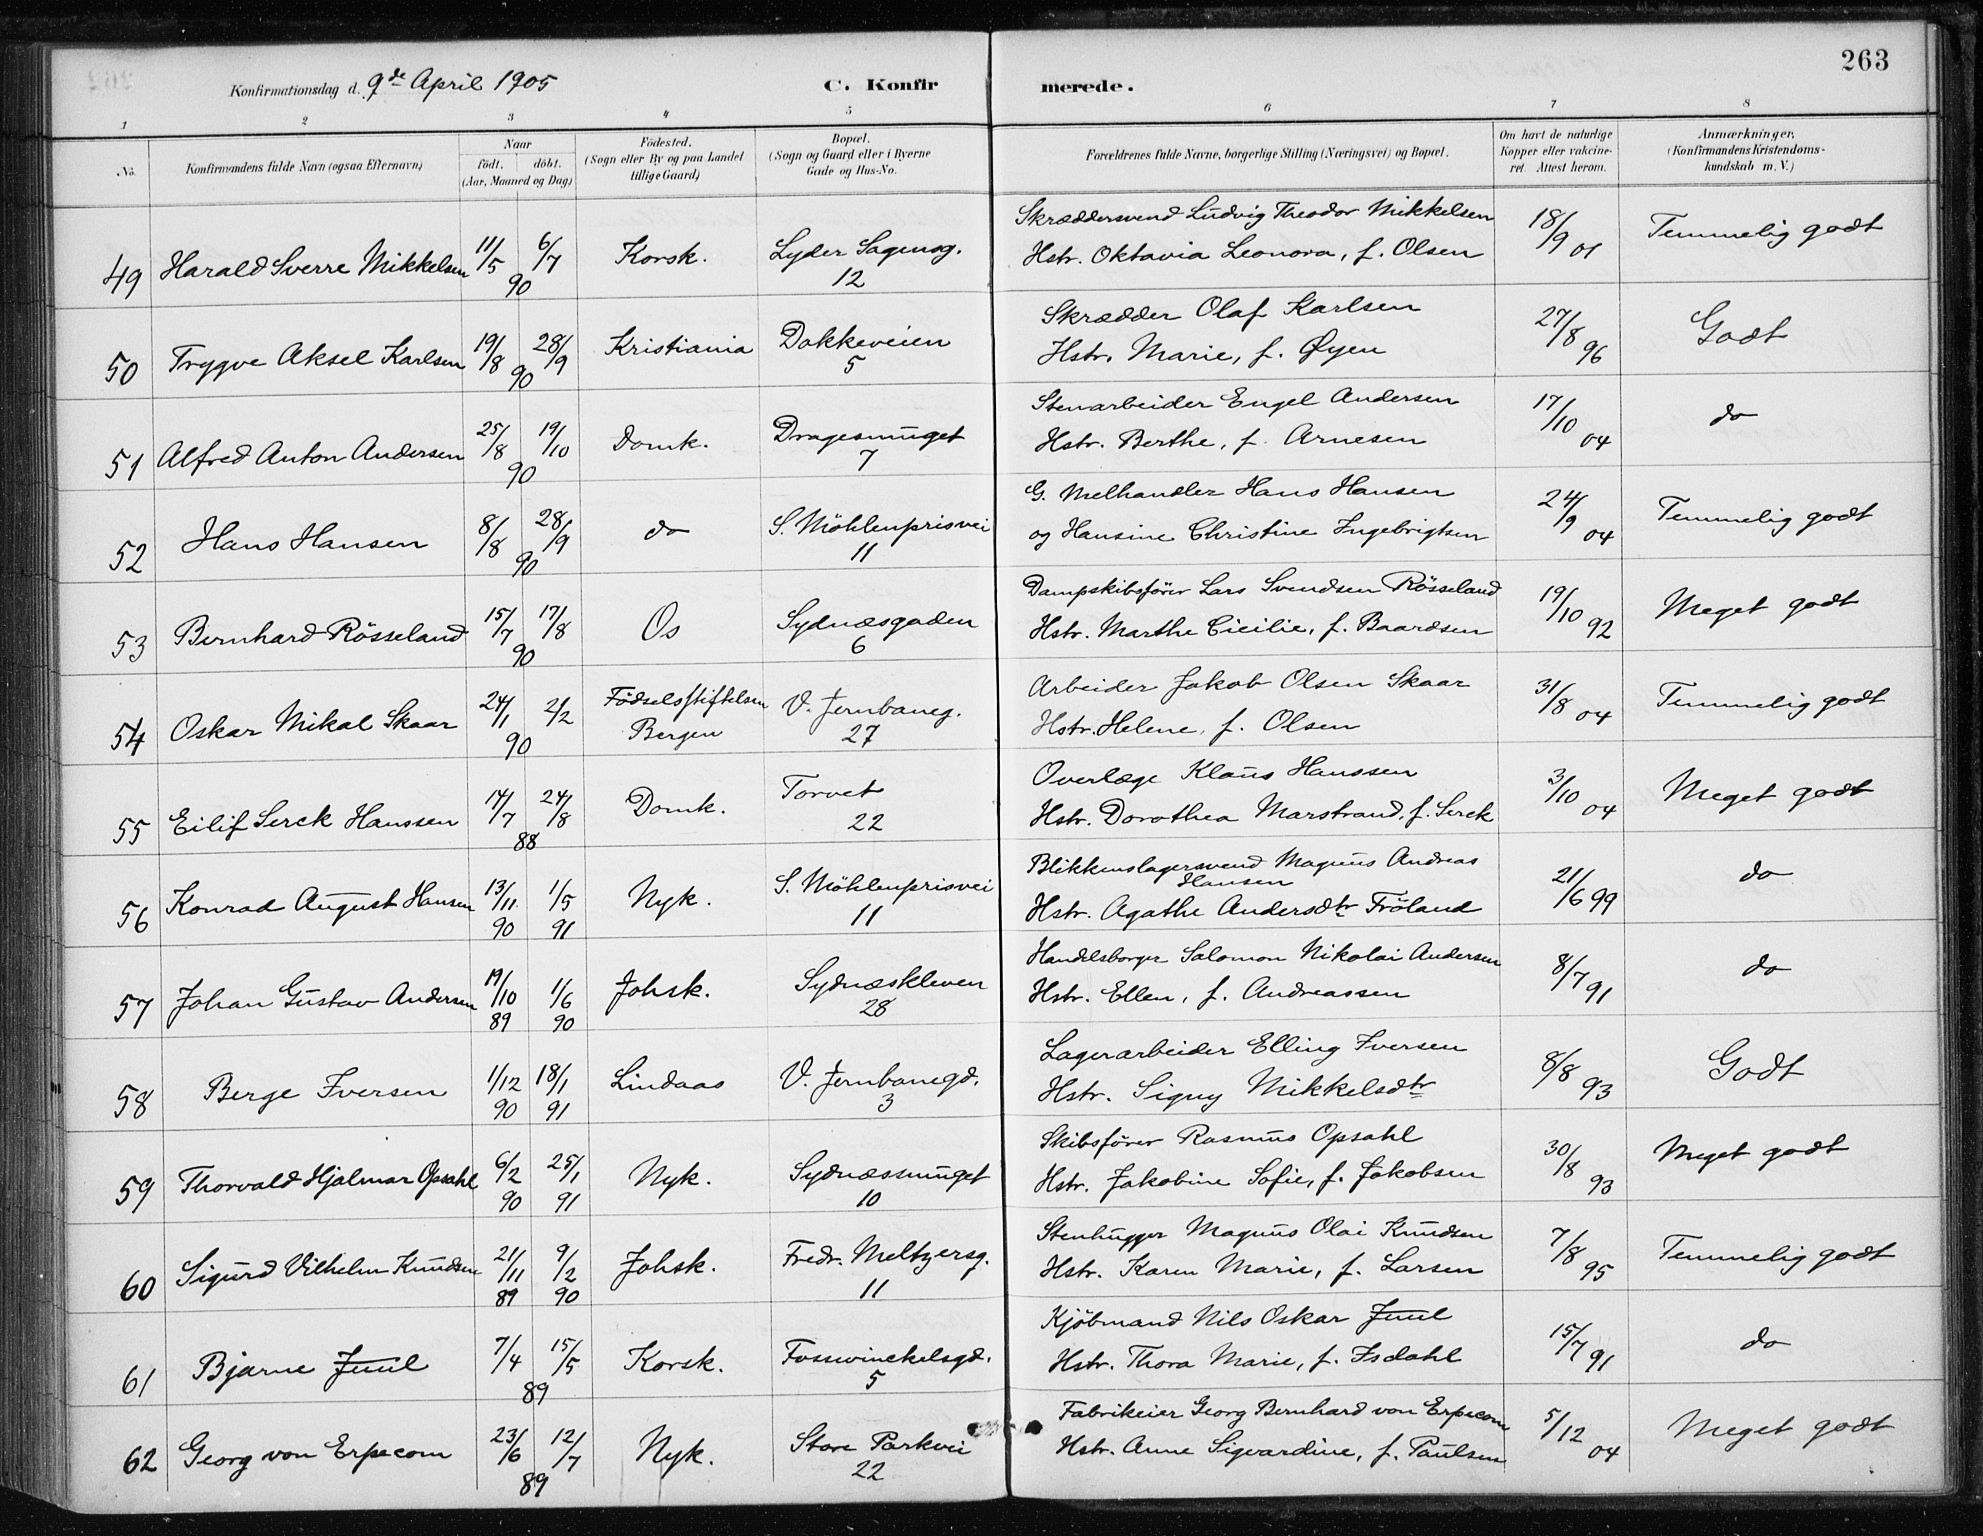 263
Konfirmationsdag d. 9de April 1905 C. Konfirmerede.
1 2 3 4 5 6 7 8
No. Konfirmandens fulde Navn (ogsaa Efternavn) Naar födt. döbt. (Aar, Maaned og Dag) Födested. (Sogn eller By og paa Landet tillige Gaard) Bopæl. (Sogn og Gaard eller i Byerne Gade og Hus-No. Forældrenes fulde Navne, borgerlige Stilling (Næringsvei) og Bopæl. Om havt de naturlige Kopper eller vakcineret. Attest herom. Anmærkninger. (Konfirmandens Kristendomskundskab m. V.)
49 Harald Sverre Mikkelsen 11/5 6/7 90 Korsk. Lyder Sagensg. 12 Skræddersvend Ludvig Theodor Mikkelsen 18/9 01 Temmelig godt
Hstr. Oktavia Leonora, f. Olsen
50 Trygve Aksel Karlsen 19/8 28/9 90 Kristiania Dokkeveien 5 Skrædder Olaf Karlsen 27/8 96 Godt
Hstr. Marie, f. Øyen
51 Alfred Anton Andersen 25/8 19/10 90 Domk. Dragesmuget 7 Stenarbeider Engel Andersen 17/10 04 do
Hstr. Berthe, f. Arnesen
52 Hans Hansen 8/8 28/9 90 do S. Möhlenprisvei 11 G. Melhandler Hans Hansen 24/9 04 Temmelig godt
og Hansine Christine Ingebrigtsen
53 Bernhard Rösseland 15/7 17/8 90 Os Sydnæsgaden 6 Dampskibsfører Lars Svendsen Rösseland 19/10 92 Meget godt
Hstr. Marthe Cicilie, f. Baardsen
54 Oskar Mikal Skaar 24/1 2/2 90 Födselsstiftelsen Bergen V. Jernbaneg. 27 Arbeider Jakob Olsen Skaar 31/8 04 Temmelig godt
Hstr. Helene, f. Olsen
55 Eilif Serck Hanssen 14/7 24/8 88 Domk. Torvet 22 Overlæge Klaus Hanssen 3/10 04 Meget godt
Hstr. Dorothea Marstrand, f. Serck
56 Konrad August Hansen 13/11 90 1/5 91 Nyk. S. Möhlenprisvei 11 Blikkenslagersvend Magnus Andreas Hansen 21/6 99 do
Hstr. Agathe Andersdtr Fröland
57 Johan Gustav Andersen 19/10 89 1/6 90 Johsk. Sydnæskleven 28 Handelsborger Salomon Nikolai Andersen 8/7 91 do
Hstr. Ellen, f. Andreassen
58 Berge Iversen 1/12 90 18/1 91 Lindaas V. Jernbanegd. 3 Lagerarbeider Elling Iversen 8/8 93 Godt
Hstr. Signy Mikkelsdtr
59 Thorvald Hjalmar Opsahl 6/2 90 25/1 91 Nyk. Sydnæssmuget 10 Skibsfører Rasmus Opsahl 30/8 93 Meget godt
Hstr. Jakobine Sofie, f. Jakobsen
60 Sigurd Vilhelm Knudsen 21/11 89 9/2 90 Johsk. Fredr. Meltzersg. 11 Stenhugger Magnus Olai Knudsen 7/8 95 Temmelig godt
Hstr. Karen Marie, f. Larsen
61 Bjarne Juul 7/4 15/5 89 Korsk. Fosswinckelsgd. 5 Kjöbmand Nils Oskar Juul 15/7 91 do
Hstr. Thora Marie, f. Isdahl
62 Georg von Erpecom 23/6 12/7 89 Nyk. Store Parkvei 22 Fabrikeier Georg Bernhard von Erpecom 5/12 04 Meget godt
Hstr. Anne Sigvardine, f. Paulsen